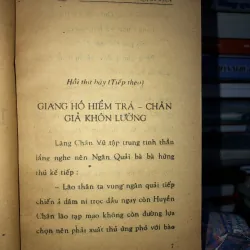 Hồi thứ bảy (Tiếp theo)
GIANG HỒ HIỂM TRÁ – CHÂN
GIẢ KHÔN LƯỜNG
Lăng Chấn Vũ tập trung tinh thần
lắng nghe nên Ngân Quải bà bà hứng
thú kể tiếp :
– Lão thân ta vung ngân quải tiếp
chiến ả dâm ni trọc đầu ngay còn Huyền
Chân lão tạp mao không còn đường lựa
chọn nên phải xuất thủ ứng phó với bào